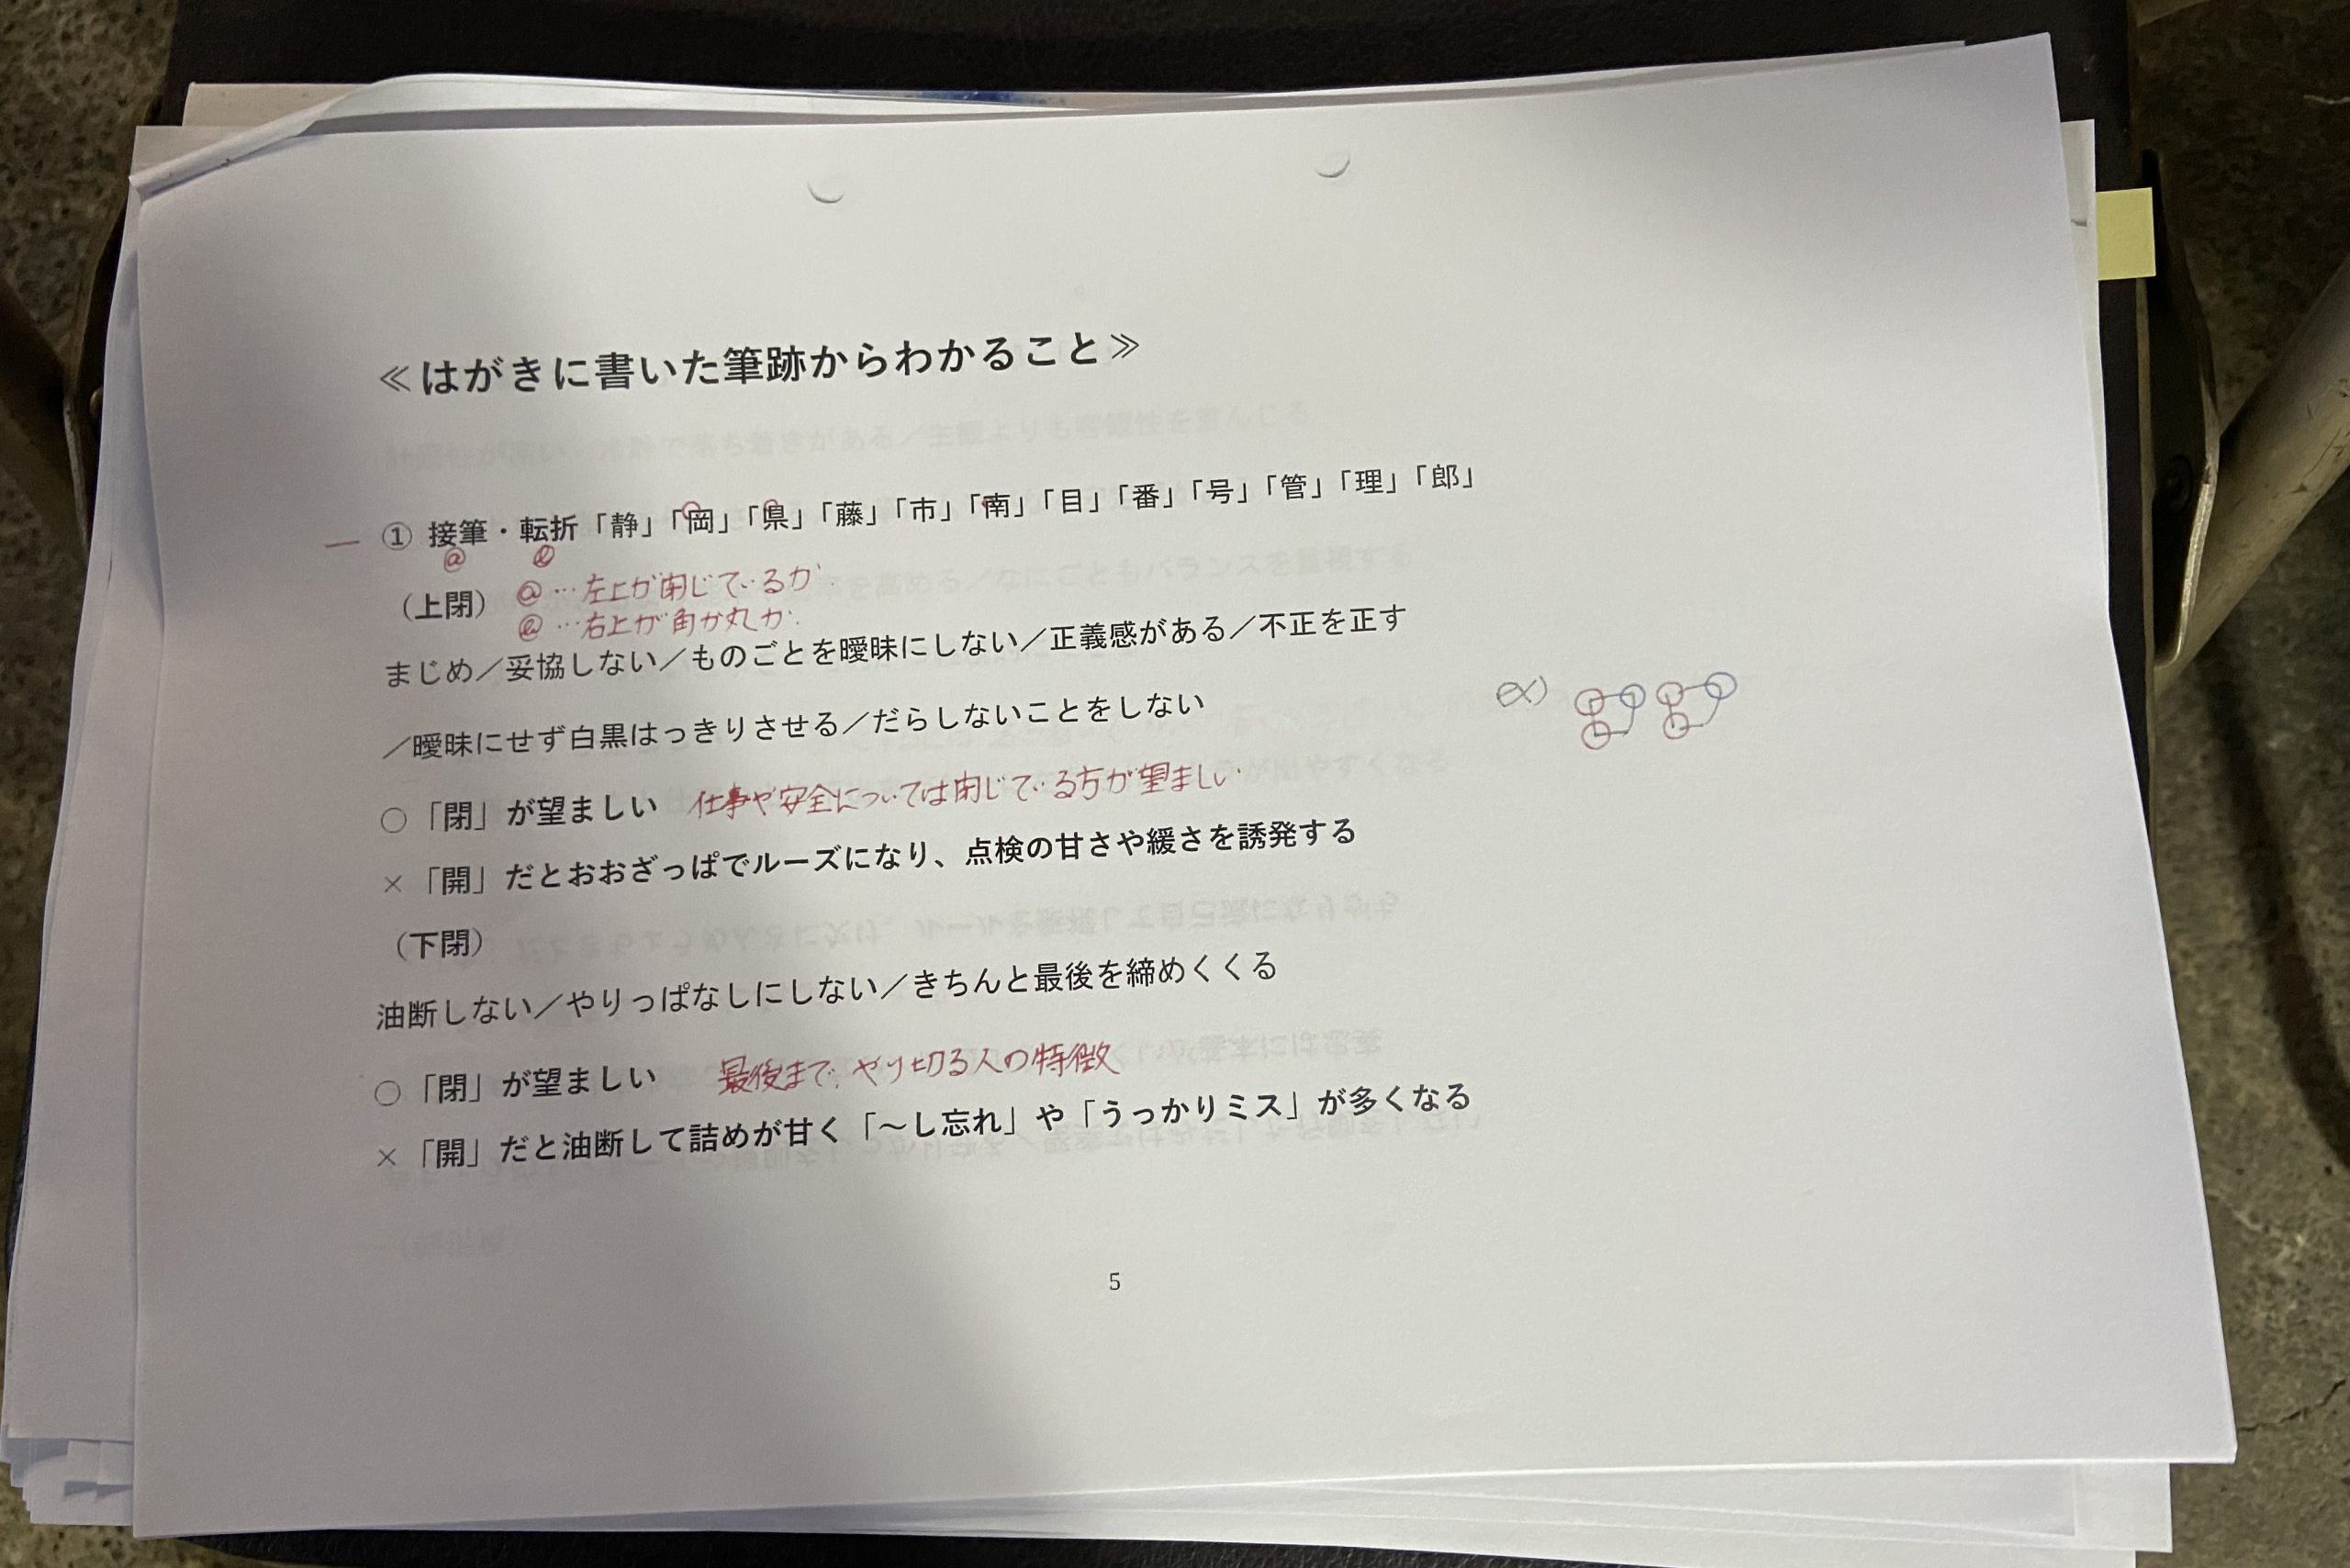 ≪はがきに書いた筆跡からわかること≫
① 接筆・転折「静」「岡」「県」「藤」「市」「南」「目」「番」「号」「管」「理」「郎」
ⓐ ⓑ
(上閉) ⓐ…左上が閉じているか
ⓑ…右上が角か丸か
まじめ／妥協しない／ものごとを曖昧にしない／正義感がある／不正を正す
／曖昧にせず白黒はっきりさせる／だらしないことをしない
ex)
○「閉」が望ましい 仕事や安全については閉じている方が望ましい
×「開」だとおおざっぱでルーズになり、点検の甘さや緩さを誘発する
(下閉)
油断しない／やりっぱなしにしない／きちんと最後を締めくくる
○「閉」が望ましい 最後まで、やり切る人の特徴
×「開」だと油断して詰めが甘く「～し忘れ」や「うっかりミス」が多くなる
5